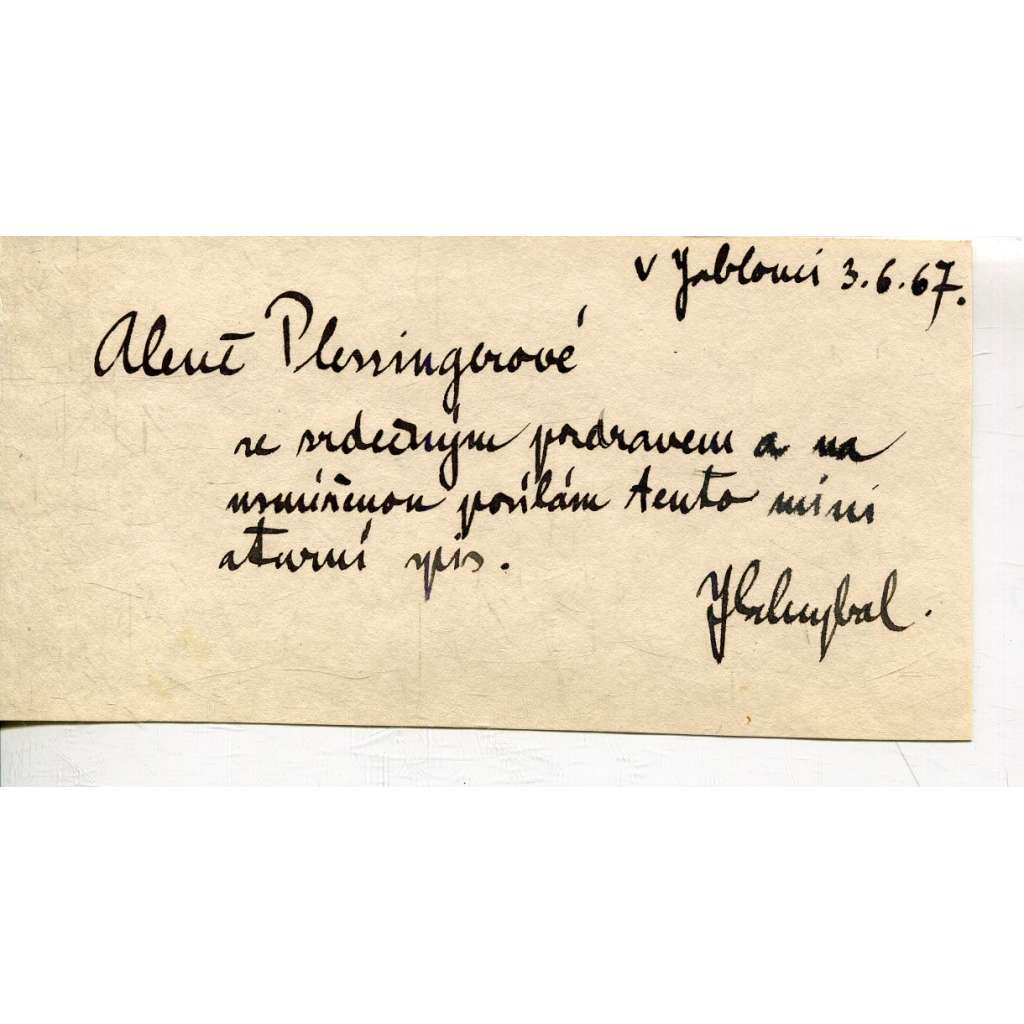 v Jablonci 3.6.67.
Aleně Plessingerové
se srdečným pozdravem a na
usmířenou posílám tento mini
aturní spis.
JVScheybal.